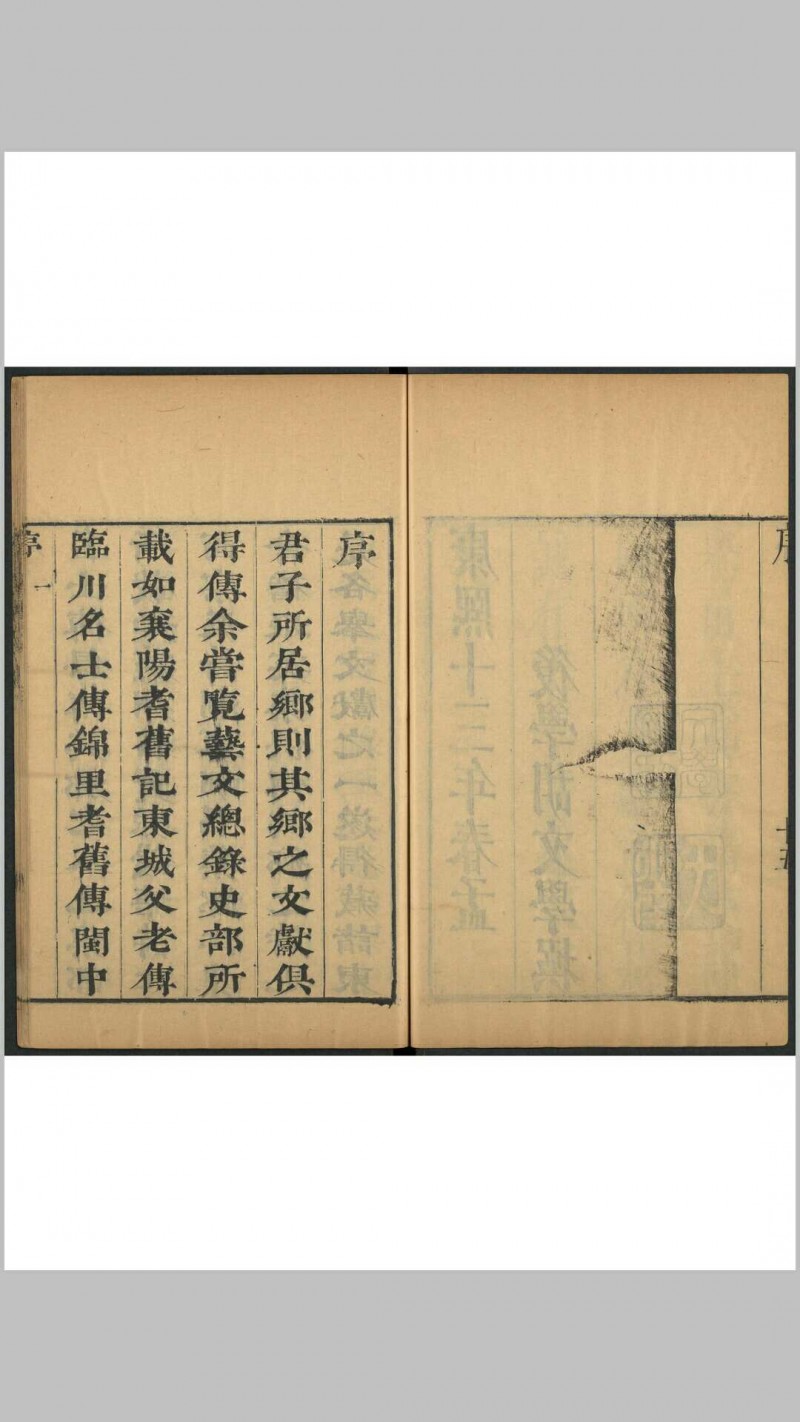 序
君子所居鄉則其鄉之文獻俱
得傳余嘗覽藝文總錄史部所
載如襄陽耆舊記東城父老傳
臨川名士傳錦里耆舊傳閩中
序 一